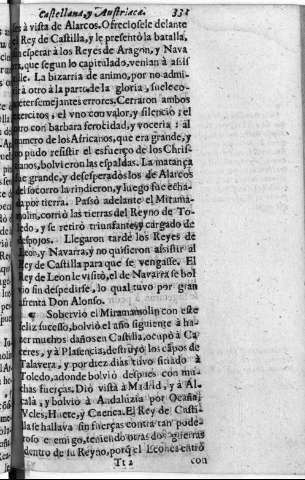 Castellana, y Austriaca. 331
a vista de Alarcos. Ofreciosele delante
Rey de Castilla, y le presentò la batalla,
esperar à los Reyes de Aragon, y Nava
que segun lo capitulado, venian à asis
La bizarria de animo, por no admi
à otro à la parte de la gloria, suele co
semejantes errores. Cerraron ambos
el vno con valor, y silencio; el
con barbara ferocidad, y voceria; al
de los Africanos, que era grande, y
pudo resistir el esfuerço de los Chris-
bolvieron las espaldas. La matança
grande, y desesperados los de Alarcos
socorro la rindieron, y luego fue echa
por tierra. Passò adelante el Mirama-
molin, corriò las tierras del Reyno de To-
ledo, y se retirò triunfante, y cargado de
despojos. Llegaron tarde los Reyes de
Leon, y Navarra, y no quisieron assistir al
Rey de Castilla para que se vengasse. El
Rey de Leon le visitò, el de Navarra se bol
sin despedirse, lo qual tuvo por gran
afrenta Don Alonso.
¶ Sobervio el Miramamolin con este
feliz sucesso, bolviò el año siguiente à ha-
zer muchos daños en Castilla, ocupò à Ca-
ceres, y à Plasencia, destruyò los cāpos de
Talavera, y por diez dias tuvo sitiado à
Toledo, adonde bolviò despues con mu-
chas fuerças. Diò vista à Madrid, y à Al-
calà, y bolviò à Andaluzia por Ocaña,
Vcles, Huete, y Cuenca. El Rey de Casti-
se hallava sin fuerças contra tan pode-
roso enemigo, teniendo otras dos guerras
dentro de su Reyno, porq̄ el Leones entrò
Tt 2 con